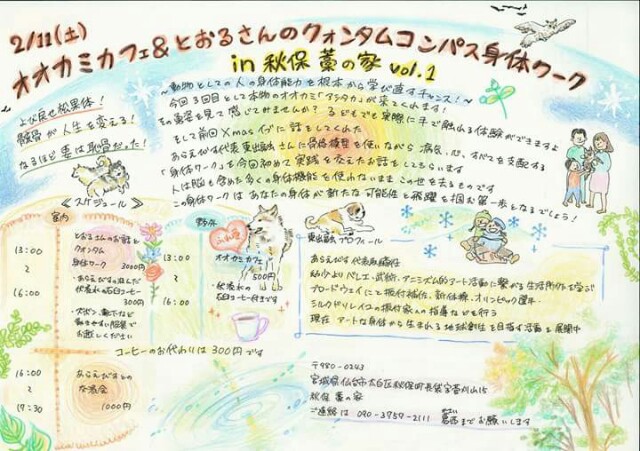 2/11(土)
オオカミカフェ&とおるさんのクォンタムコンパス身体ワーク
in 秋保 藁の家 vol.1
~動物としての人の身体能力を根本から学び直すチャンス!~
今回3回目として本物のオオカミ「アシタカ」が来てくれます!
その勇姿を見て感じてみませんか? 子どもでも実際に手で触れる体験ができますよ
そして前回Xmasイブに話をしてくれた
あらえびす代表 東出融さんに骨格模型を使いながら 病気、心、すべてを支配する
「身体ワーク」を今回初めて実践を交えたお話をしてもらいます
人は脳も含めた多くの身体機能を使わないまま この世を去るのです
この身体ワークは あなたの身体が新たな可能性と飛躍を掴む第一歩となるでしょう!
よび戻せ松果体!
骸骨が人生を変える!
なるほど要は恥骨だった!
《スケジュール》
室内
13:00
~
16:00
とおるさんのお話と
クォンタム
身体ワーク
3000円
・あらえびすの
石臼コーヒー付
お越しください
16:00
~
17:30
あらえびすとの
交流会
1000円
野外
13:00
~
16:00
ふれ愛
オオカミカフェ
500円
石臼コーヒー付きです
コーヒーのおかわりは300円です
東出融プロフィール
あらえびす 代表取締役
幼少よりバレエ、武術、アニミズム的アート活動に繋がる生活作法を学ぶ
ブロードウェイにて振付補佐、新体操、オリンピック選手、
シルクドソレイユの振付家への指導などを行う
現在 アートな身体から生まれる地球創生を目指す活動を展開中
〒980-0243
宮城県仙台市太白区秋保町長袋字
秋保 藁の家
ご連絡は 090-3759-2111 までお願いします